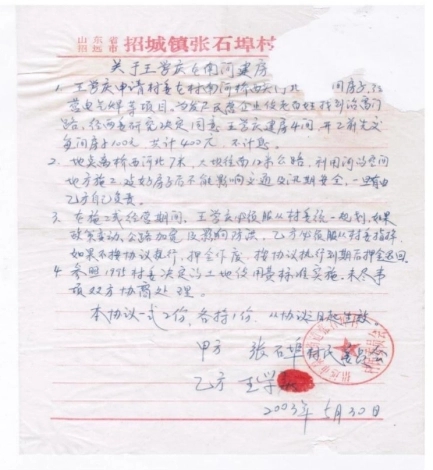 山东省
招远市 招城镇张石埠村
关于王学庆在南河建房
1、王学庆申请村委在村南河桥西头河北 间房子，经
营电气焊等项目，
路，经两委研究决定同意王学庆建房4间，并之前先交
每间房子100元，共计400元，不计息。
2、地点为桥西河北7米，大坝往南12米公路，利用河沟空间
地方施工，建好房子后不能影响交通及汛期安全，一切由
乙方自己负责。
3、在施工或经营期间，王学庆必须服从村委统一规划，如果
政策变动，公路加宽及影响防洪，乙方必须服从村委指挥，
如果不按协议执行，押金作废，按协议执行到期后押金退回。
4、参照1995村委决定的土地使用费标准实施，未尽事
项双方协商处理。
本协议一式2份，各持1份，从协议日起生效。
甲方 张石埠村民委员会
乙方 王学庆
2003年5月30日